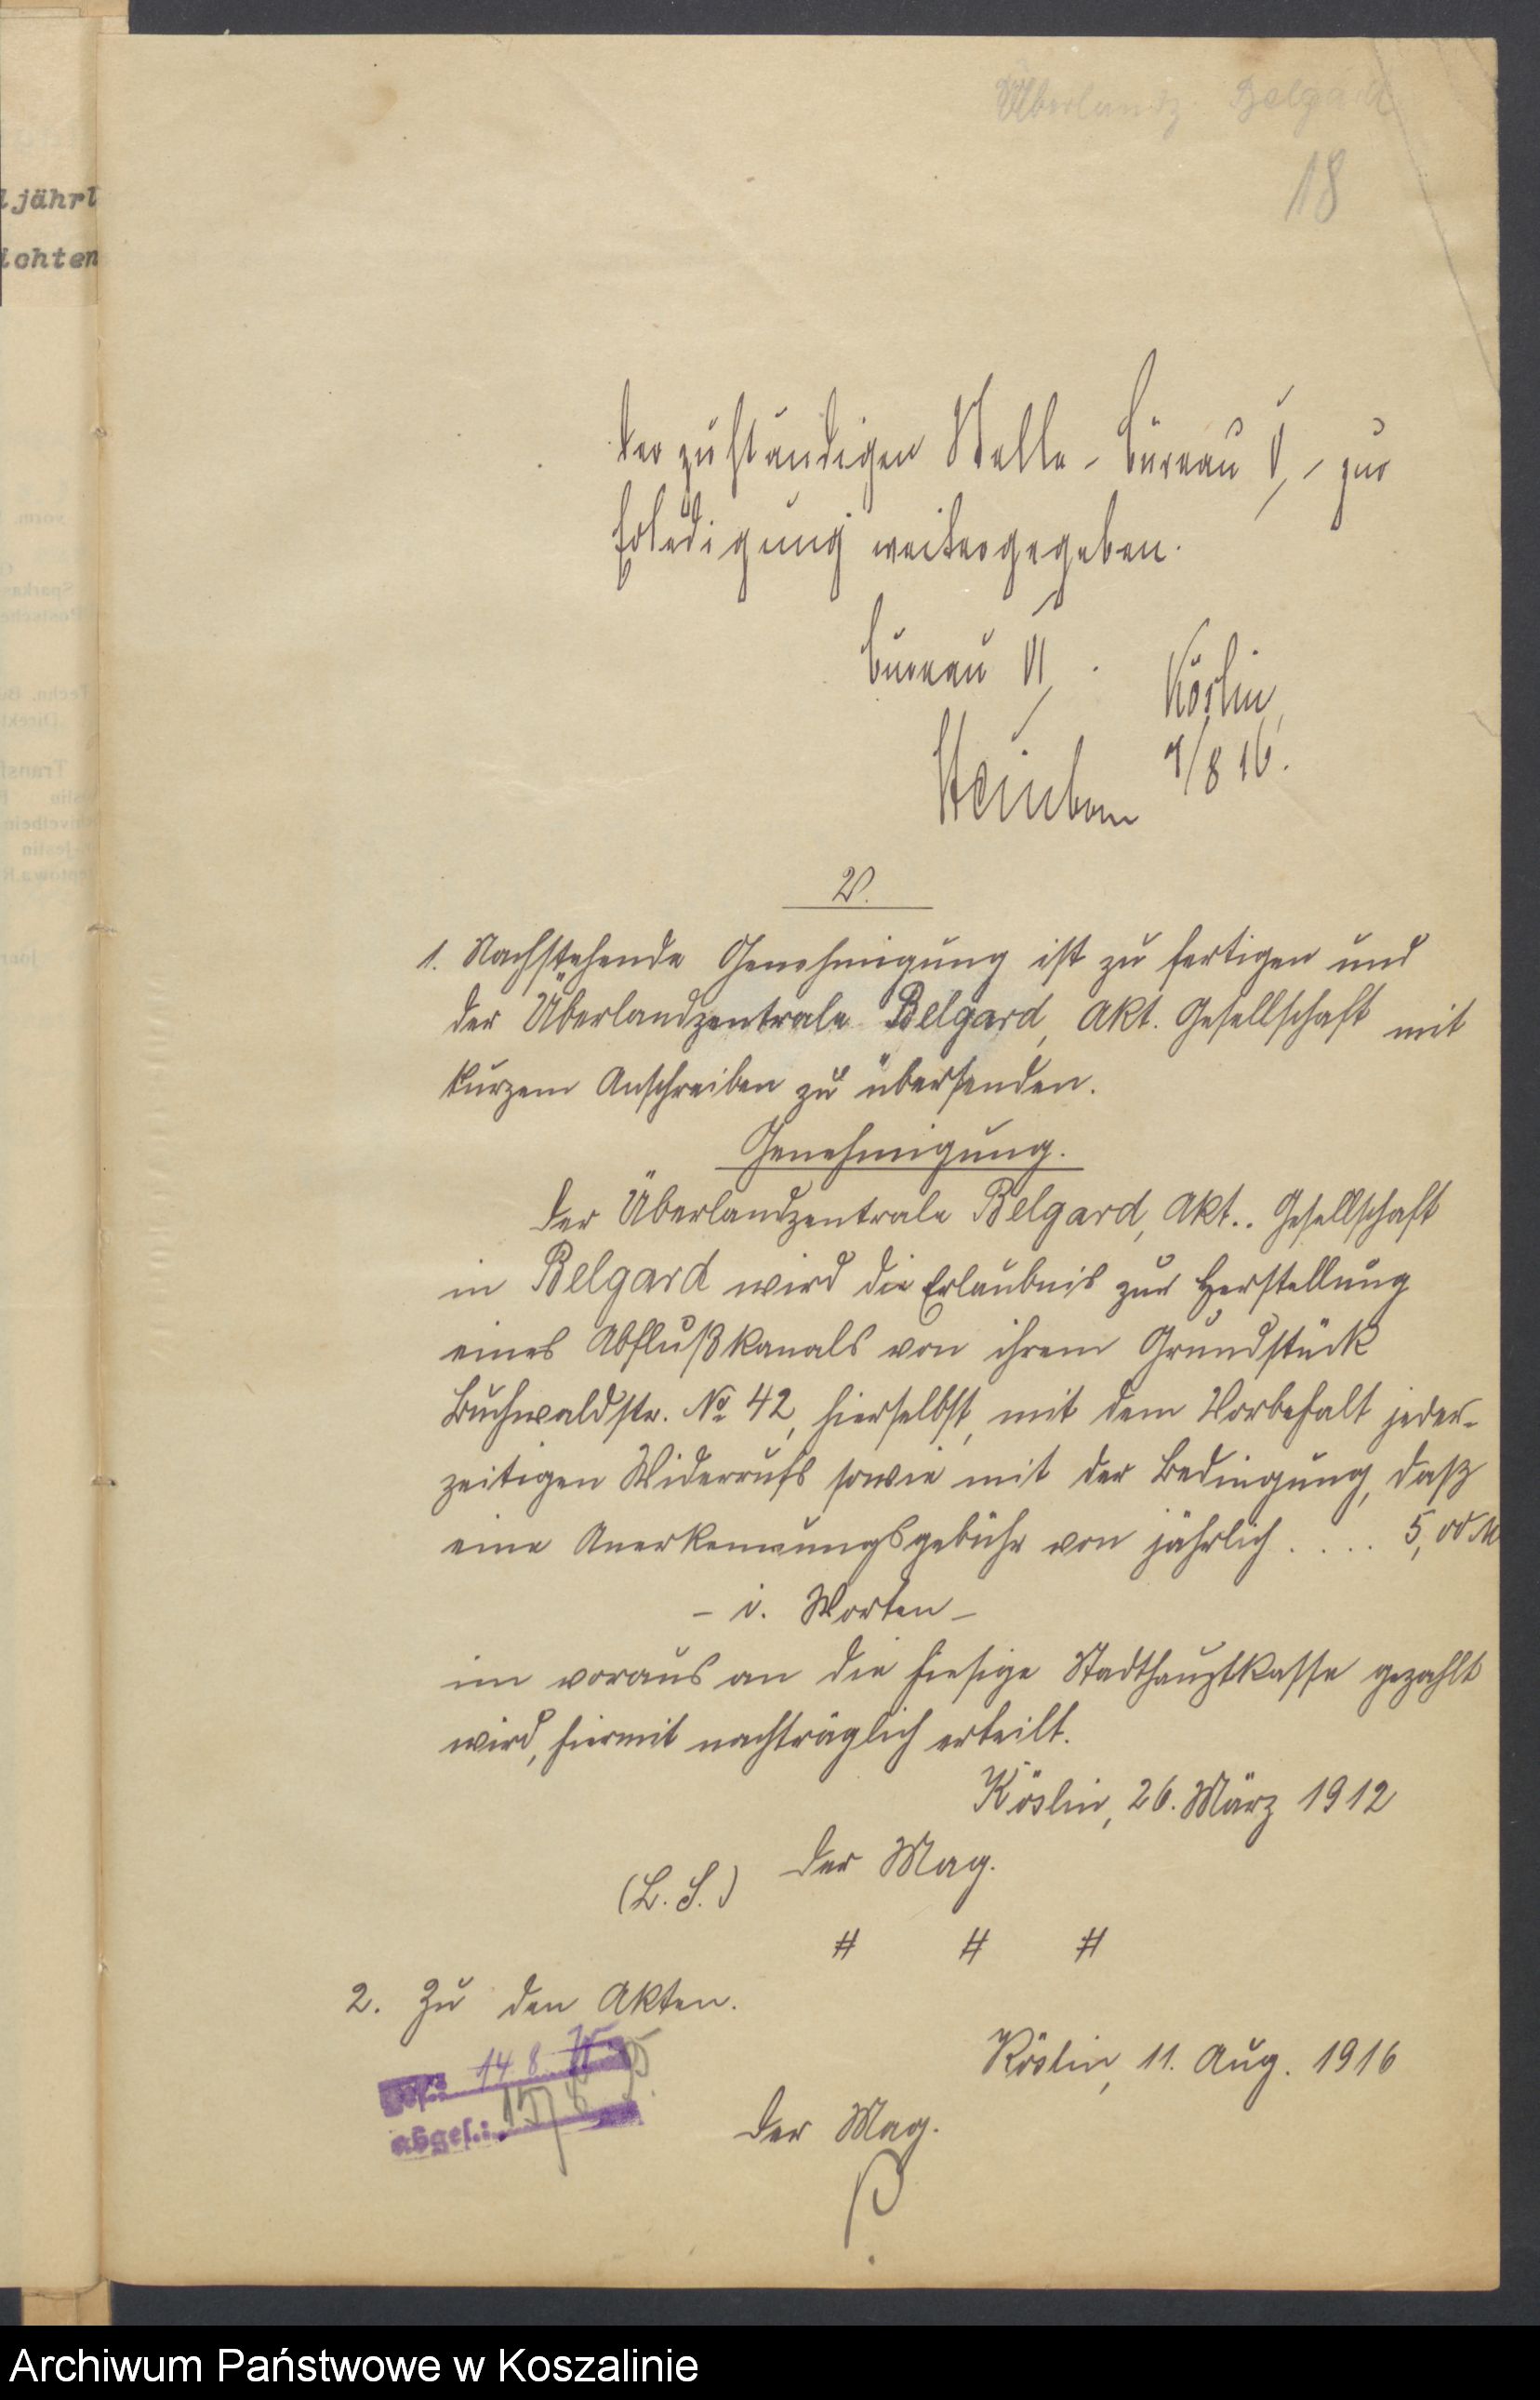 Überlandz. Belgard
18
ljährl
ichten
der zuständigen Stelle - Büreau V, - zur
Erledigung weitergegeben.
Bureau VI,
Köslin,
9/8 16.
V.
1. Nachstehende Genehmigung ist zu fertigen und
der Überlandzentrale Belgard, Akt. Gesellschaft mit
kurzem Anschreiben zu übersenden.
Genehmigung.
Der Überlandzentrale Belgard, Akt.. Gesellschaft
in Belgard wird die Erlaubnis zur Herstellung
eines Abflußkanals von ihrem Grundstück
Buchwaldstr. No 42, hierselbst, mit dem Vorbehalt jeder-
zeitigen Widerrufs sowie mit der Bedingung, daß
eine Anerkennungsgebühr von jährlich .... 5,00 M
- i. Worten -
im voraus an die hiesige Stadthauptkasse gezahlt
wird, hiermit nachträglich erteilt.
Köslin, 26. März 1912
Der Mag.
(L. S.)
# # #
2. Zu den Akten.
14 8
abges.:
Köslin, 11. Aug. 1916
Der Mag.
Archiwum Państwowe w Koszalinie